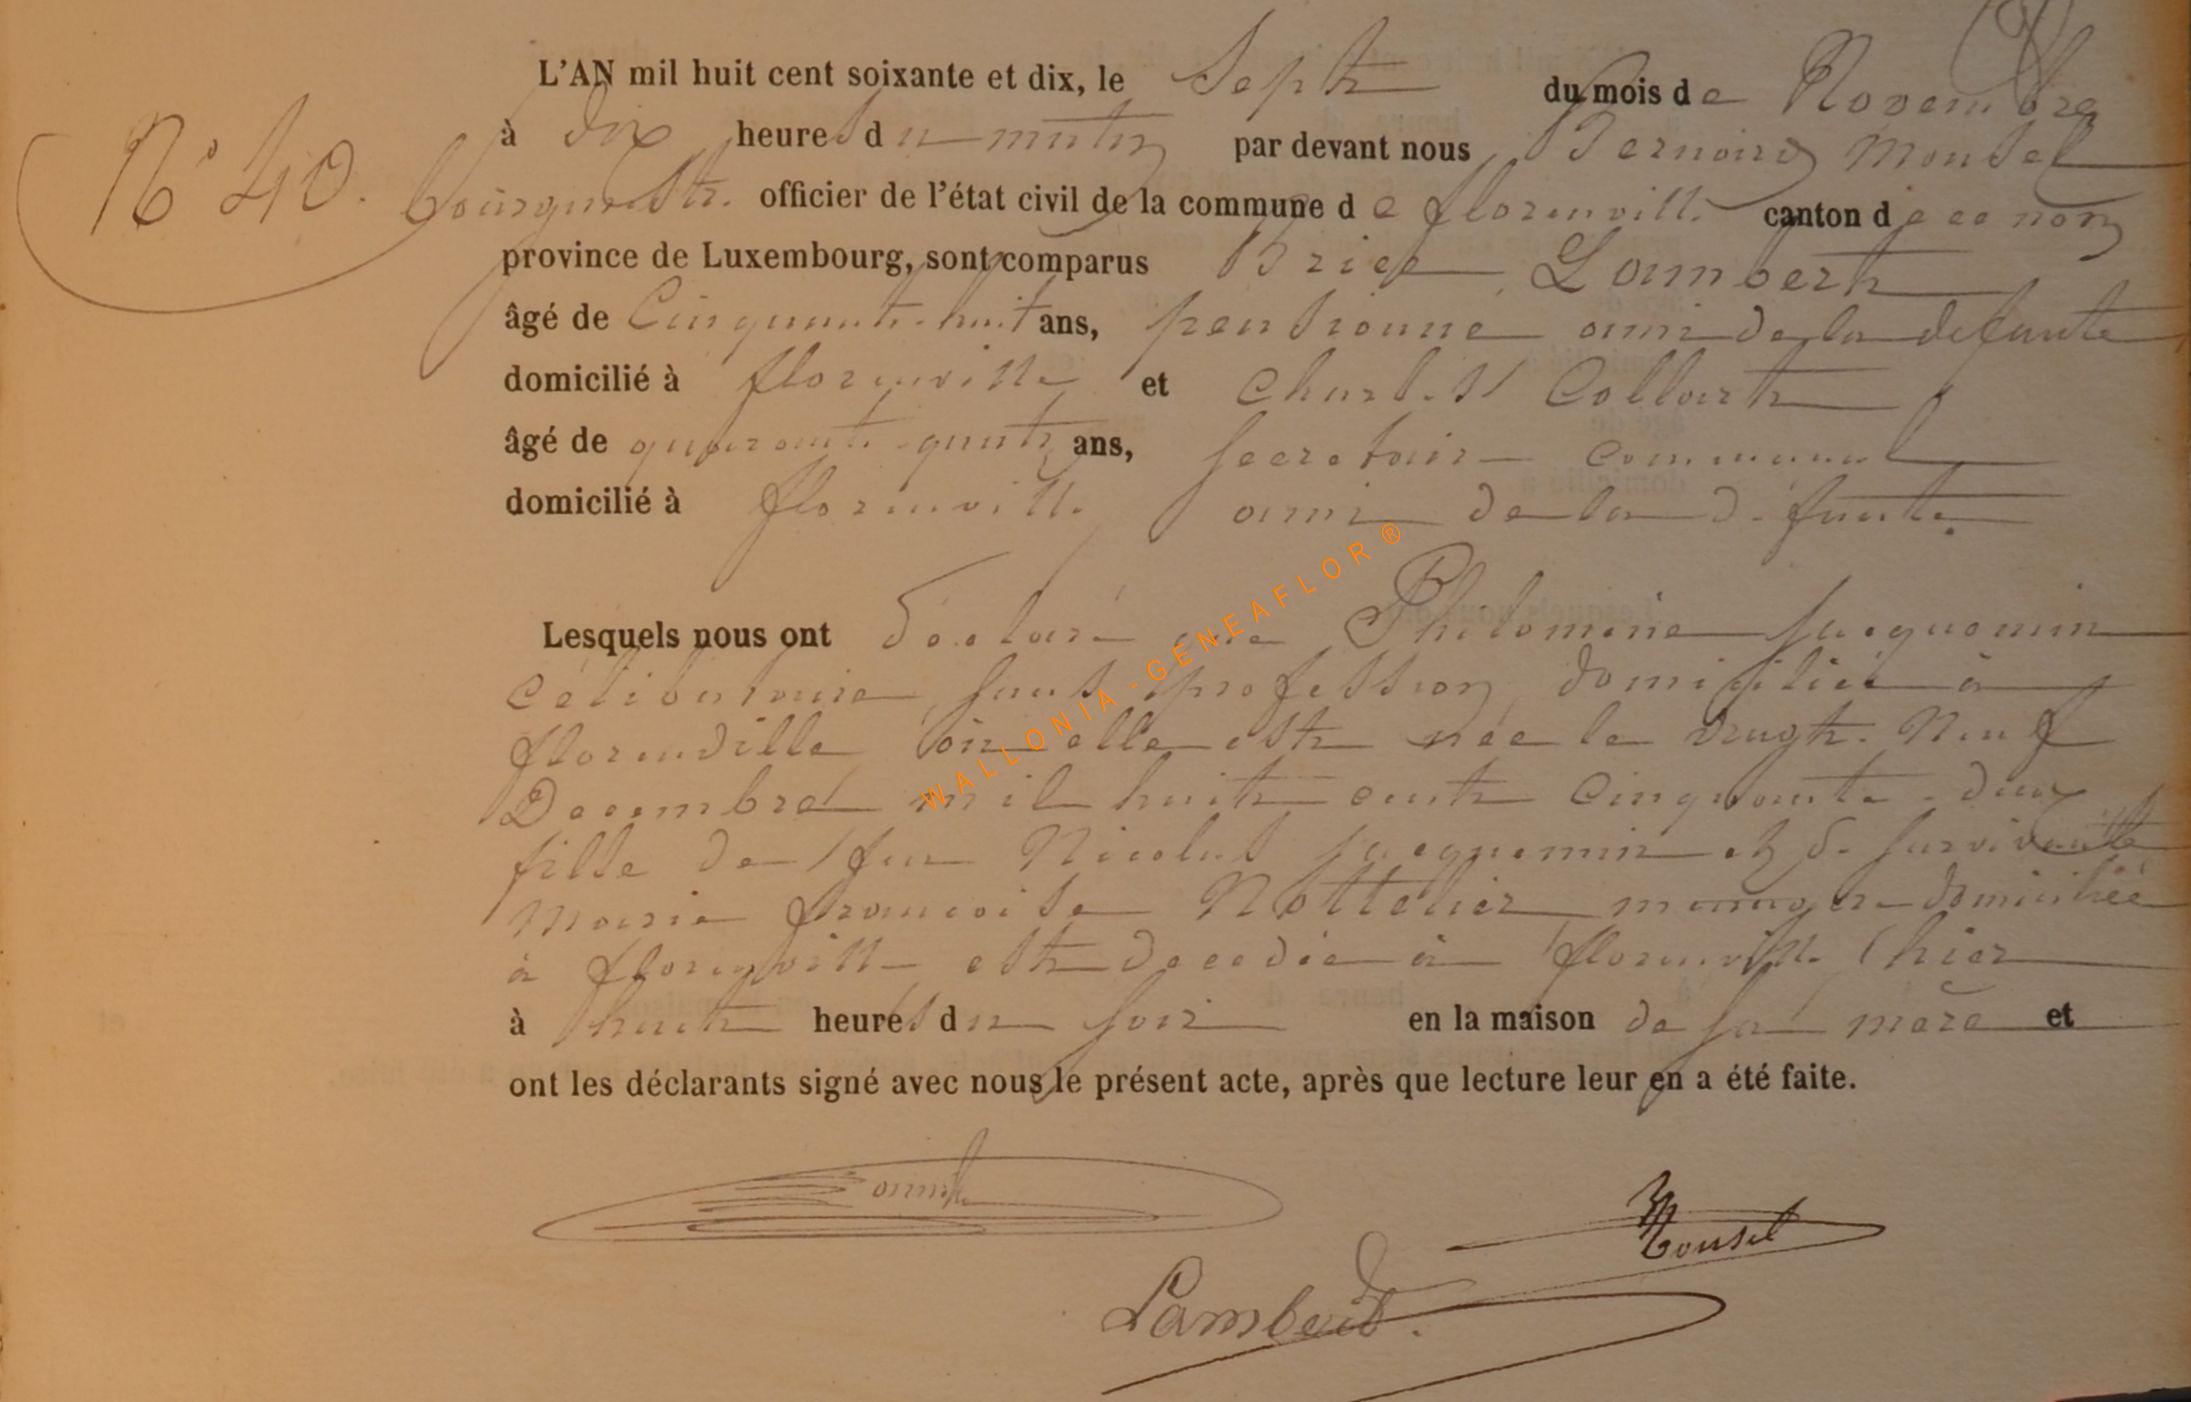 L'AN mil huit cent soixante et dix, le Sept du mois de Novembre
N° 40. à dix heures du matin par devant nous Bernard Monsel
bourgmestre. officier de l'état civil de la commune de florenville canton d
province de Luxembourg, sont comparus Brice Lambert
âgé de Cinquante-huit ans, pensionné ami de la defunte
domicilié à florenville et Charles Collart
âgé de quarante-quatre ans, secretaire communal
domicilié à florenville ami de la défunte.
Lesquels nous ont déclaré que Philomène Jacquemin
Célibataire, sans profession, domiciliée à
florenville où elle est née le vingt-Neuf
Decembre mil huit cent Cinquante-deux
fille de feu Nicolas Jacquemin et de survivante
Marie françoise Nottelier menagere domiciliée
à florenville est decedée à florenville hier
à huit heures du soir en la maison de sa mère et
ont les déclarants signé avec nous le présent acte, après que lecture leur en a été faite.
Monsel
Lambert.
WALLONIA-GENEAFLOR ®